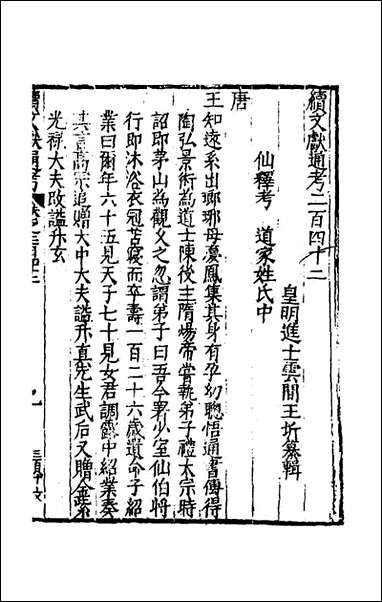 續文獻通考二百四十二
皇明進士雲間王圻纂輯
仙釋考 道家姓氏中
唐
王知遠系出瑯琊母夢鳳集其身有孕幼聰悟通書傳得
陶弘景術為道士陳後主隋煬帝嘗執弟子禮太宗時
詔即茅山為觀处之忽謂弟子曰吾今署少室仙伯將
行即沐浴衣冠苫寢而卒壽一百二十六歲遺命子紹
業曰爾年六十五見天子七十見女君調露中紹業奏
其言高宗追贈大中大夫謚升真先生武后又贈金紫
光祿大夫改謚升玄